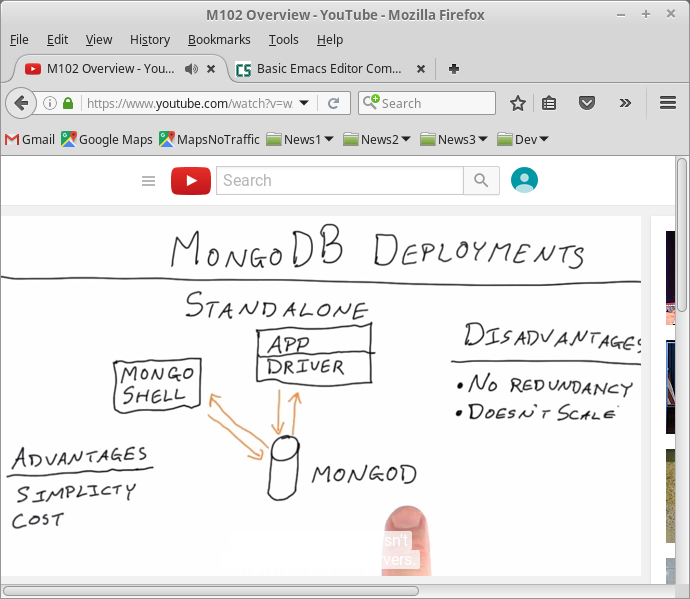 M102 Overview - YouTube - Mozilla Firefox
File Edit View History Bookmarks Tools Help
M102 Overview - You...
Basic Emacs Editor Com...
https://www.youtube.com/watch?v=w
Search
Gmail Google Maps MapsNoTraffic News1 News2 News3 Dev
Search
MONGODB DEPLOYMENTS
STANDALONE
APP
DRIVER
MONGO
SHELL
DISADVANTAGES
• NO REDUNDANCY
• DOESN'T SCALE
ADVANTAGES
SIMPLICTY
COST
MONGOD